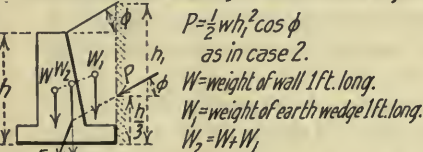 P=½wh₁²cos φ
as in case 2.
W=weight of wall 1ft. long.
W₁=weight of earth wedge 1ft. long.
W₂=W+W₁
φ
h
h₁
W
W₂
W₁
P
φ
h/3